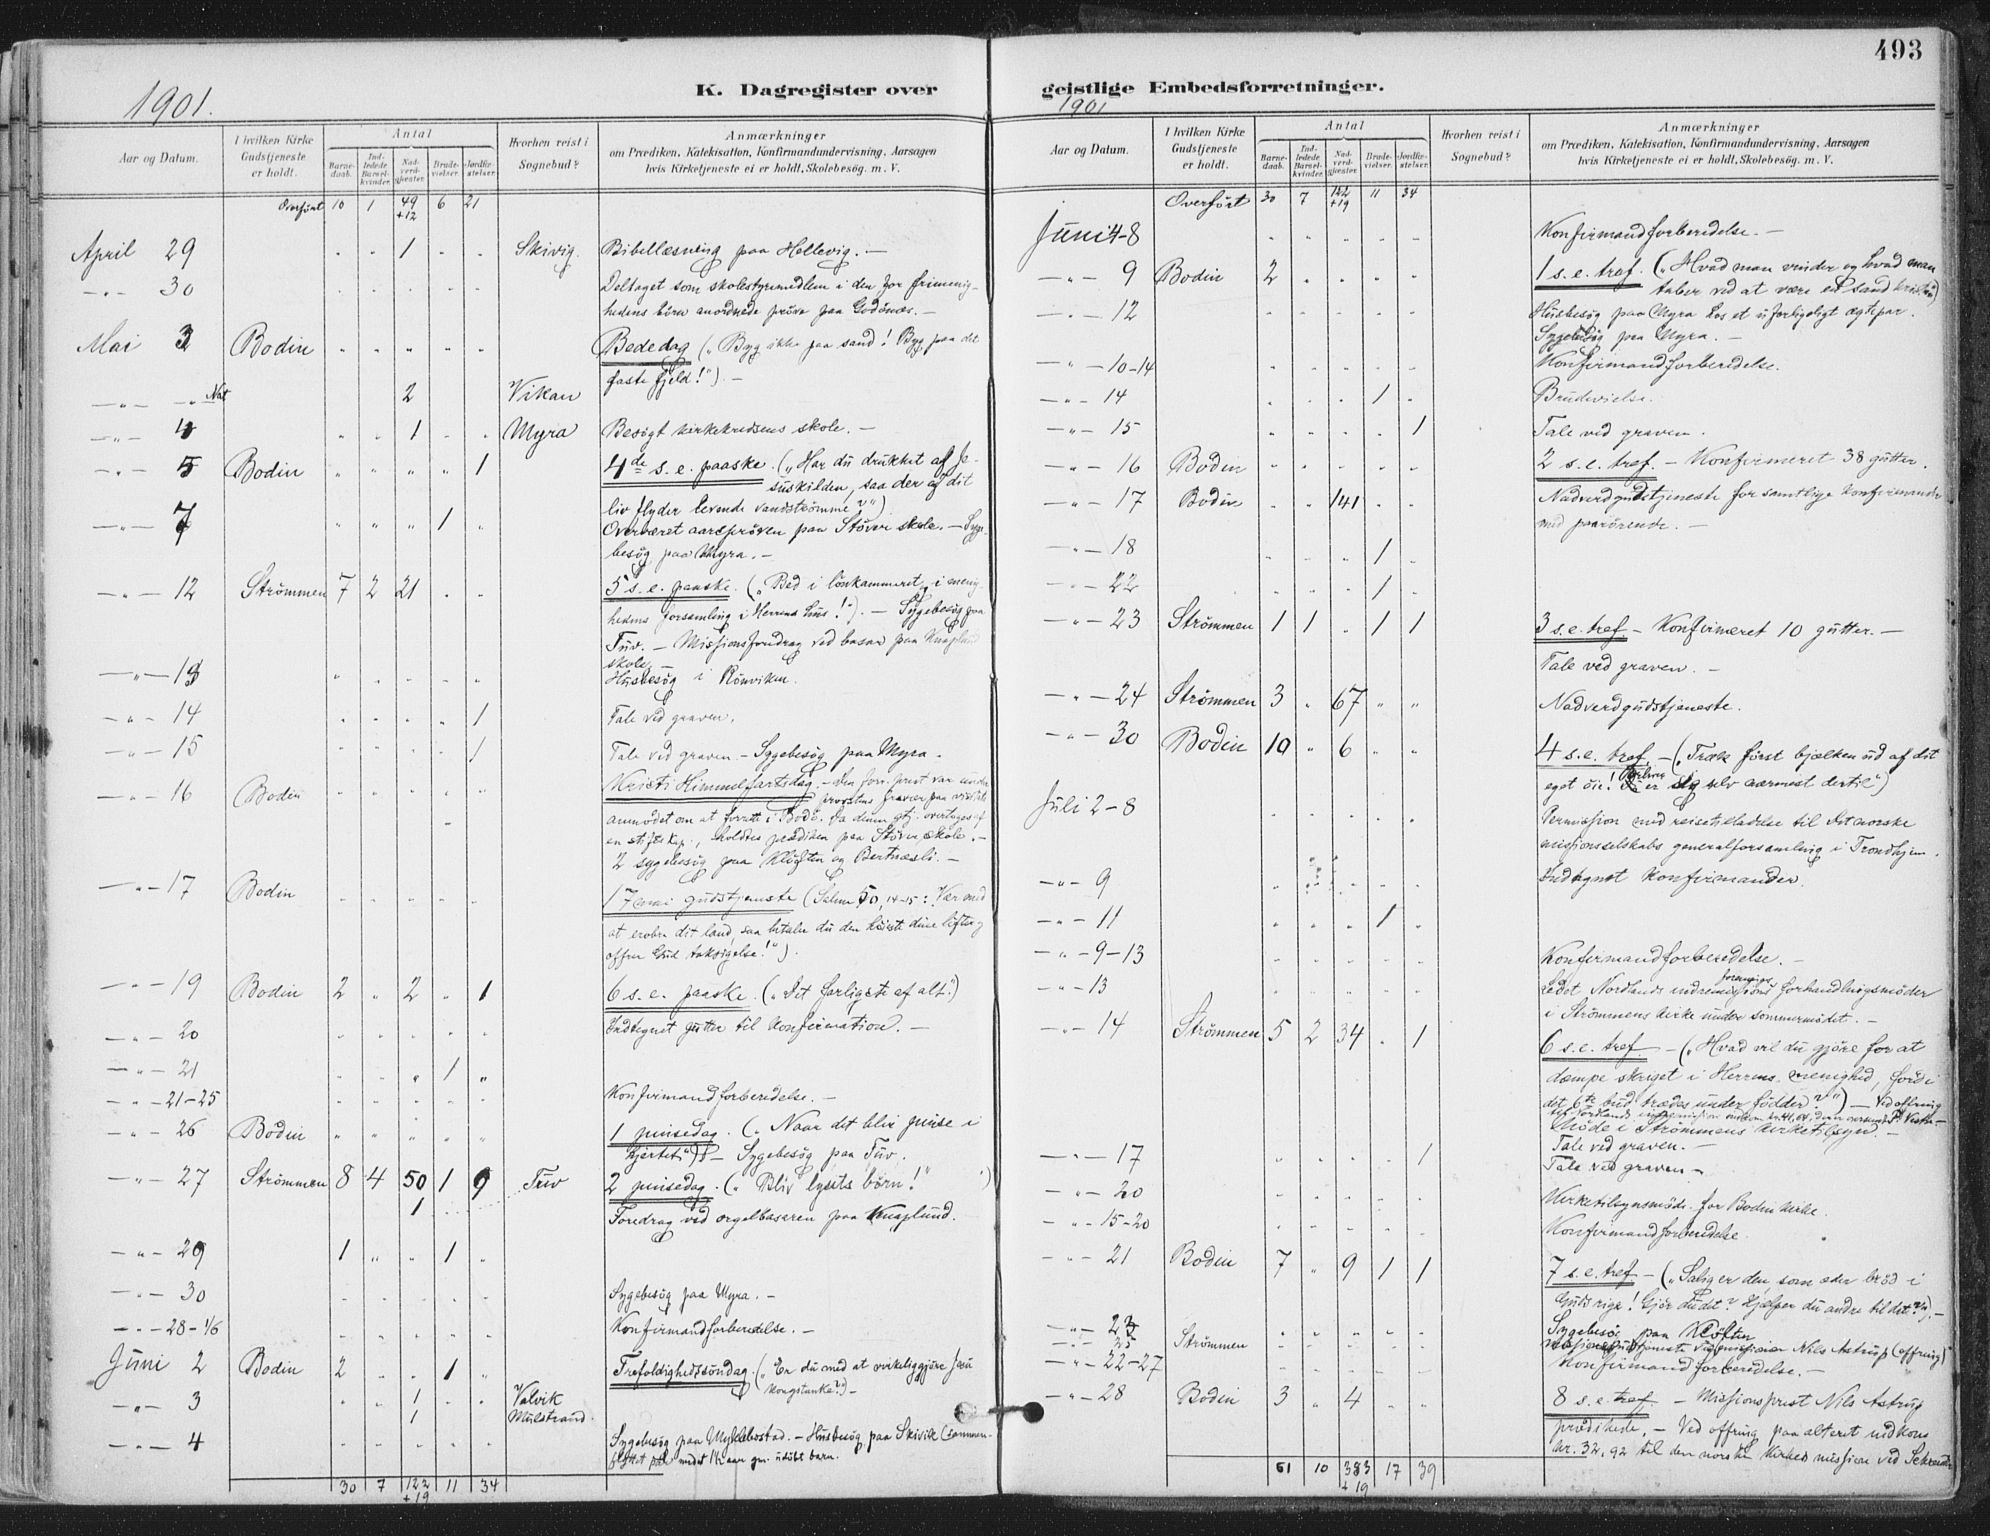 493
K. Dagregister over
1901.
Aar og Datum.
I hvilken Kirke Gudstjeneste er holdt.
Antal
Barne-daab.
Ind-ledede Barsel-kvinder.
Nad-verd-gjester.
Brude-vielser.
Jordfæ-stelser.
Hvorhen reist i Sognebud?
Anmærkninger
om Prædiken, Katekisation, Konfirmandundervisning, Aarsagen
hvis Kirketjeneste ei er holdt, Skolebesög. m. V.
Overført 10 1 49 +12 6 21
April 29 " " 1 " " Skivig. Bibellæsning paa Hellevig. —
— " — 30 Deltaget som skolestyremedlem i den for frimenig-
hedens börn anordnede pröve paa Godönæs. —
Mai 3 Bodin " " " " " Bededag („Byg ikke paa sand! Byg paa det
faste fjeld!"). —
— " — " Nat 2 Vikan
— " — 4 " " 1 " " Myra Besögt kirkekredsens skole. —
— " — 5 Bodin " " " " 1 4de s. e. paaske. („Har du drukket af Je-
suskilden, saa der af dit
liv flyder levende vandströmme?")
— " — 7 " " " 1 " Overværet aarspröven paa Störvr skole. — Syge-
besög paa Myra. —
— " — 12 Strømmen 7 2 21 " " 5 s. e. paaske. („Bed i lönkammeret, i menig-
hedens forsamling i Herrens hus!"). — Sygebesög paa
Tuv. — Missionsforedrag ved basar paa Knaplund
skole. —
— " — 13 Husbesög i Rönviken.
— " — 14 " " " " 1 Tale ved graven.
— " — 15 " " " " 1 Tale ved graven — Sygebesög paa Myra.
— " — 16 Bodin Kristi Himmelfartsdag. — Den forr. prest var under
provstens fravær paa visitats
anmodet om at forrette i Bodö. Da denne gtj. overtoges af
en stiftskap., holdtes prædiken paa Störvr skole. —
2 sygebesög paa Klöften og Bertnæsli. —
— " — 17 Bodin 17 mai gudstjeneste (Salme 50, 14-15: Vær med
at erobre dit land, saa betaler du den höieste dine löfter og
offrer Gud taksigelse!").
— " — 19 Bodin 2 " 2 " 1 6 s. e. paaske. („Det farligste af alt.")
— " — 20 Indtegnet gutter til konfirmation. —
— " — 21 " " " 1 "
— " — 21-25 Konfirmandforberedelse. —
— " — 26 Bodin " " " " " 1 pinsedag. („Naar det blir pinse i
hjertet") — Sygebesög paa Tuv.
— " — 27 Strømmen 8 4 50 1 9 Tuv 2 pinsedag. („Bliv lysets börn!")
1 Foredrag ved orgelbasaren paa Knaplund.
— " — 29 1 " " 1 "
— " — 30 Sygebesög paa Myra. —
— " — 28-1/6 Konfirmandforberedelse. —
Juni 2 Bodin 2 " " 1 " Trefoldighedssöndag. („Er du med at virkeliggjøre Jesu
kongstanke?") —
— " — 3 " " 1 " " Valvik
1 Mulstrand.
— " — 4 Sygebesög paa Myklebostad. — Husbesög paa Skivik (sammen-
30 7 122 +19 11 34
geistlige Embedsforretninger.
1901
Aar og Datum.
I hvilken Kirke Gudstjeneste er holdt.
Antal
Barne-daab.
Ind-ledede Barsel-kvinder.
Nad-verd-gjester.
Brude-vielser.
Jordfæ-stelser.
Hvorhen reist i Sognebud?
Anmærkninger
om Prædiken, Katekisation, Konfirmandundervisning, Aarsagen
hvis Kirketjeneste ei er holdt, Skolebesög. m. V.
Overført 30 7 122 +19 11 34
Juni 4-8 Konfirmandforberedelse. —
— " — 9 Bodin 2 " " " " 1 s. e. tref. („Hvad man vinder og hvad man
taber ved at være en sand kristen")
— " — 12 Husbesög paa Myra hos et uforligeligt ægtepar.
Sygebesög paa Myra. —
— " — 10-14 Konfirmandforberedelse.
— " — 14 " " " 1 " Brudevielse.
— " — 15 " " " " 1 Tale ved graven.
— " — 16 Bodin " " " " " 2 s. e. tref. — Konfirmeret 38 gutter.
— " — 17 Bodin 141 " " Nadverdgudstjeneste for samtlige konfirmander
med paarörende. —
— " — 18 " " " 1 "
— " — 22 " " " 1 "
— " — 23 Strømmen 1 1 " 1 1 3 s. e. tref — Konfirmeret 10 gutter. —
Tale ved graven. —
— " — 24 Strømmen 3 " 67 " " Nadverdgudstjeneste.
— " — 30 Bodin 10 " 6 " " 4 s. e. tref. — („Træk först bjælken ud af dit
eget öie! Du er dig selv nærmest dertil")
Juli 2-8 Permission med reisetilladelse til det norske
misjonsselskabs generalforsamling i Trondhjem.
— " — 9 Indtegnet konfirmander.
— " — 11 " " " 1 "
— " — 9-13 Konfirmandforberedelse. —
— " — 13 Ledet Nordlands indremissions forenings forhandlingsmöder
i Strømmens kirke under sommermödet. —
— " — 14 Strømmen 5 2 34 " 1 6 s. e. tref. — („Hvad vil du gjöre for at
dæmpe skriget i Herrens menighed, fordi
det 6te bud trædes under födder?") — Ved offring
Möde i Strømmens kirketilsyn. —
— " — 17 " " " " 1 Tale ved graven. —
Tale ved graven —
— " — 20 Kirketilsynsmöde for Bodin kirke.
— " — 15-20 Konfirmandforberedelse
— " — 21 Bodin 7 " 9 1 1 7 s. e. tref — („Salig er den, som æder bröd i
Guds rige! Gjör du det? Hjælper du andre til det?") —
— " — 23 Sygebesög paa Klöften
— " — 25 Strømmen Missionsgudstjeneste ved missionær Nils Astrup (offring)
— " — 22-27 Konfirmandforberedelse. —
— " — 28 Bodin 3 " 4 " " 8 s. e. tref — Missionsprest Nils Astrup
prædikede. — Ved offring paa alteret indkom
kr. 32,92 til den norske kirkes mission ved Schreuder
61 10 383 +19 17 39